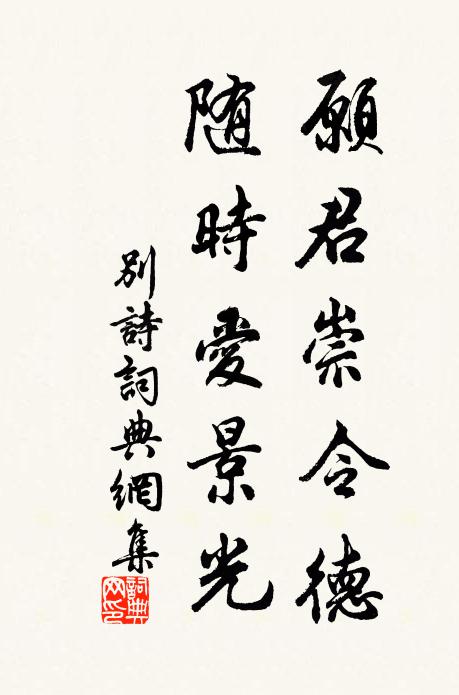 願君崇令德
随時愛景光
别詩詞典網集
詞典网印